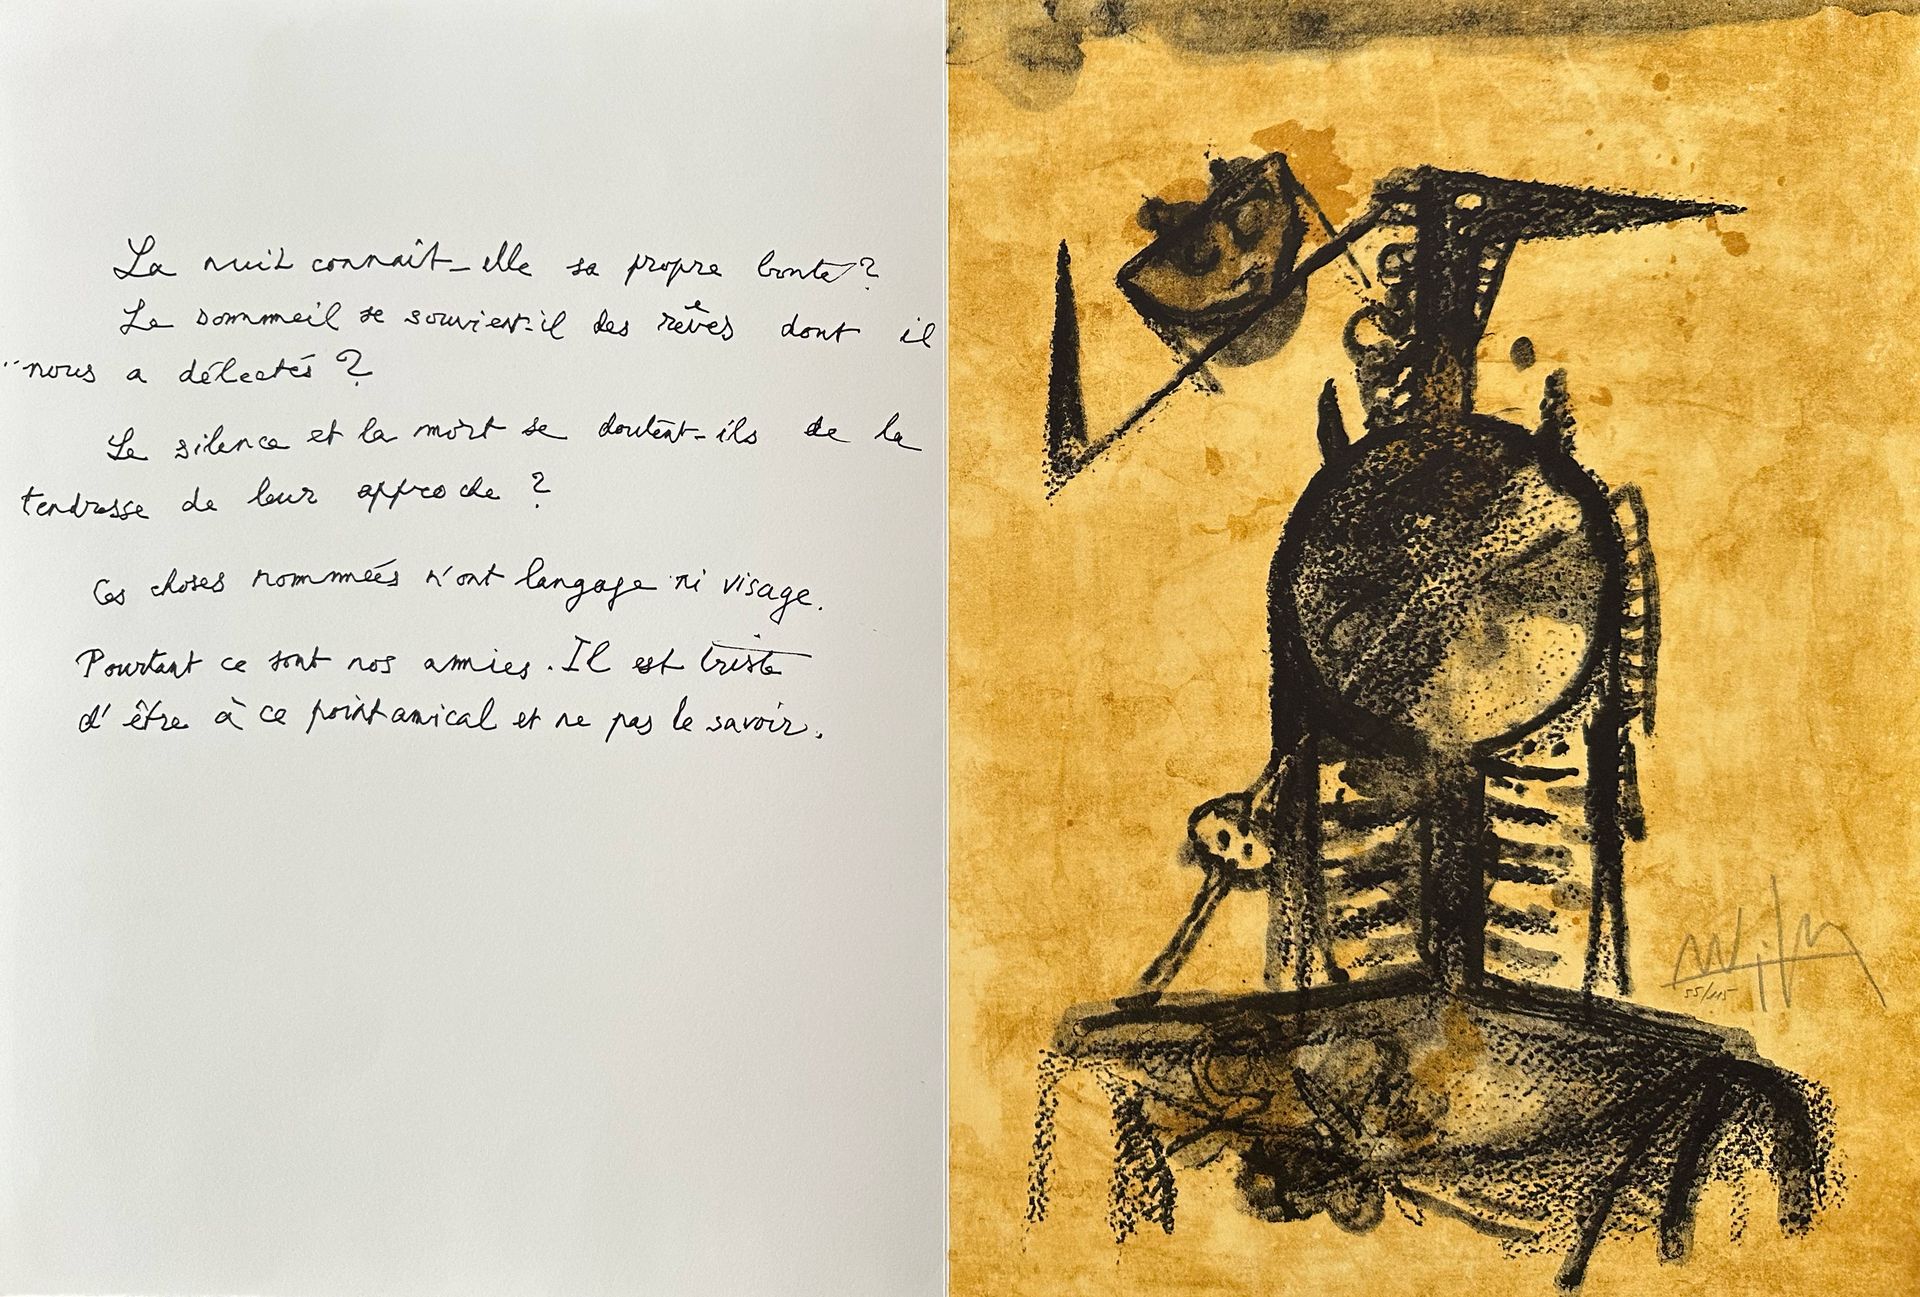 La nuit connaît-elle sa propre bonté ?
Le sommeil se souvient-il des rêves dont il
nous a délectés ?
Le silence et la mort se doutent-ils de la
tendresse de leur approche ?
Ces choses nommées n'ont langage ni visage.
Pourtant ce sont nos amies. Il est triste
d'être à ce point amical et ne pas le savoir.
55/115